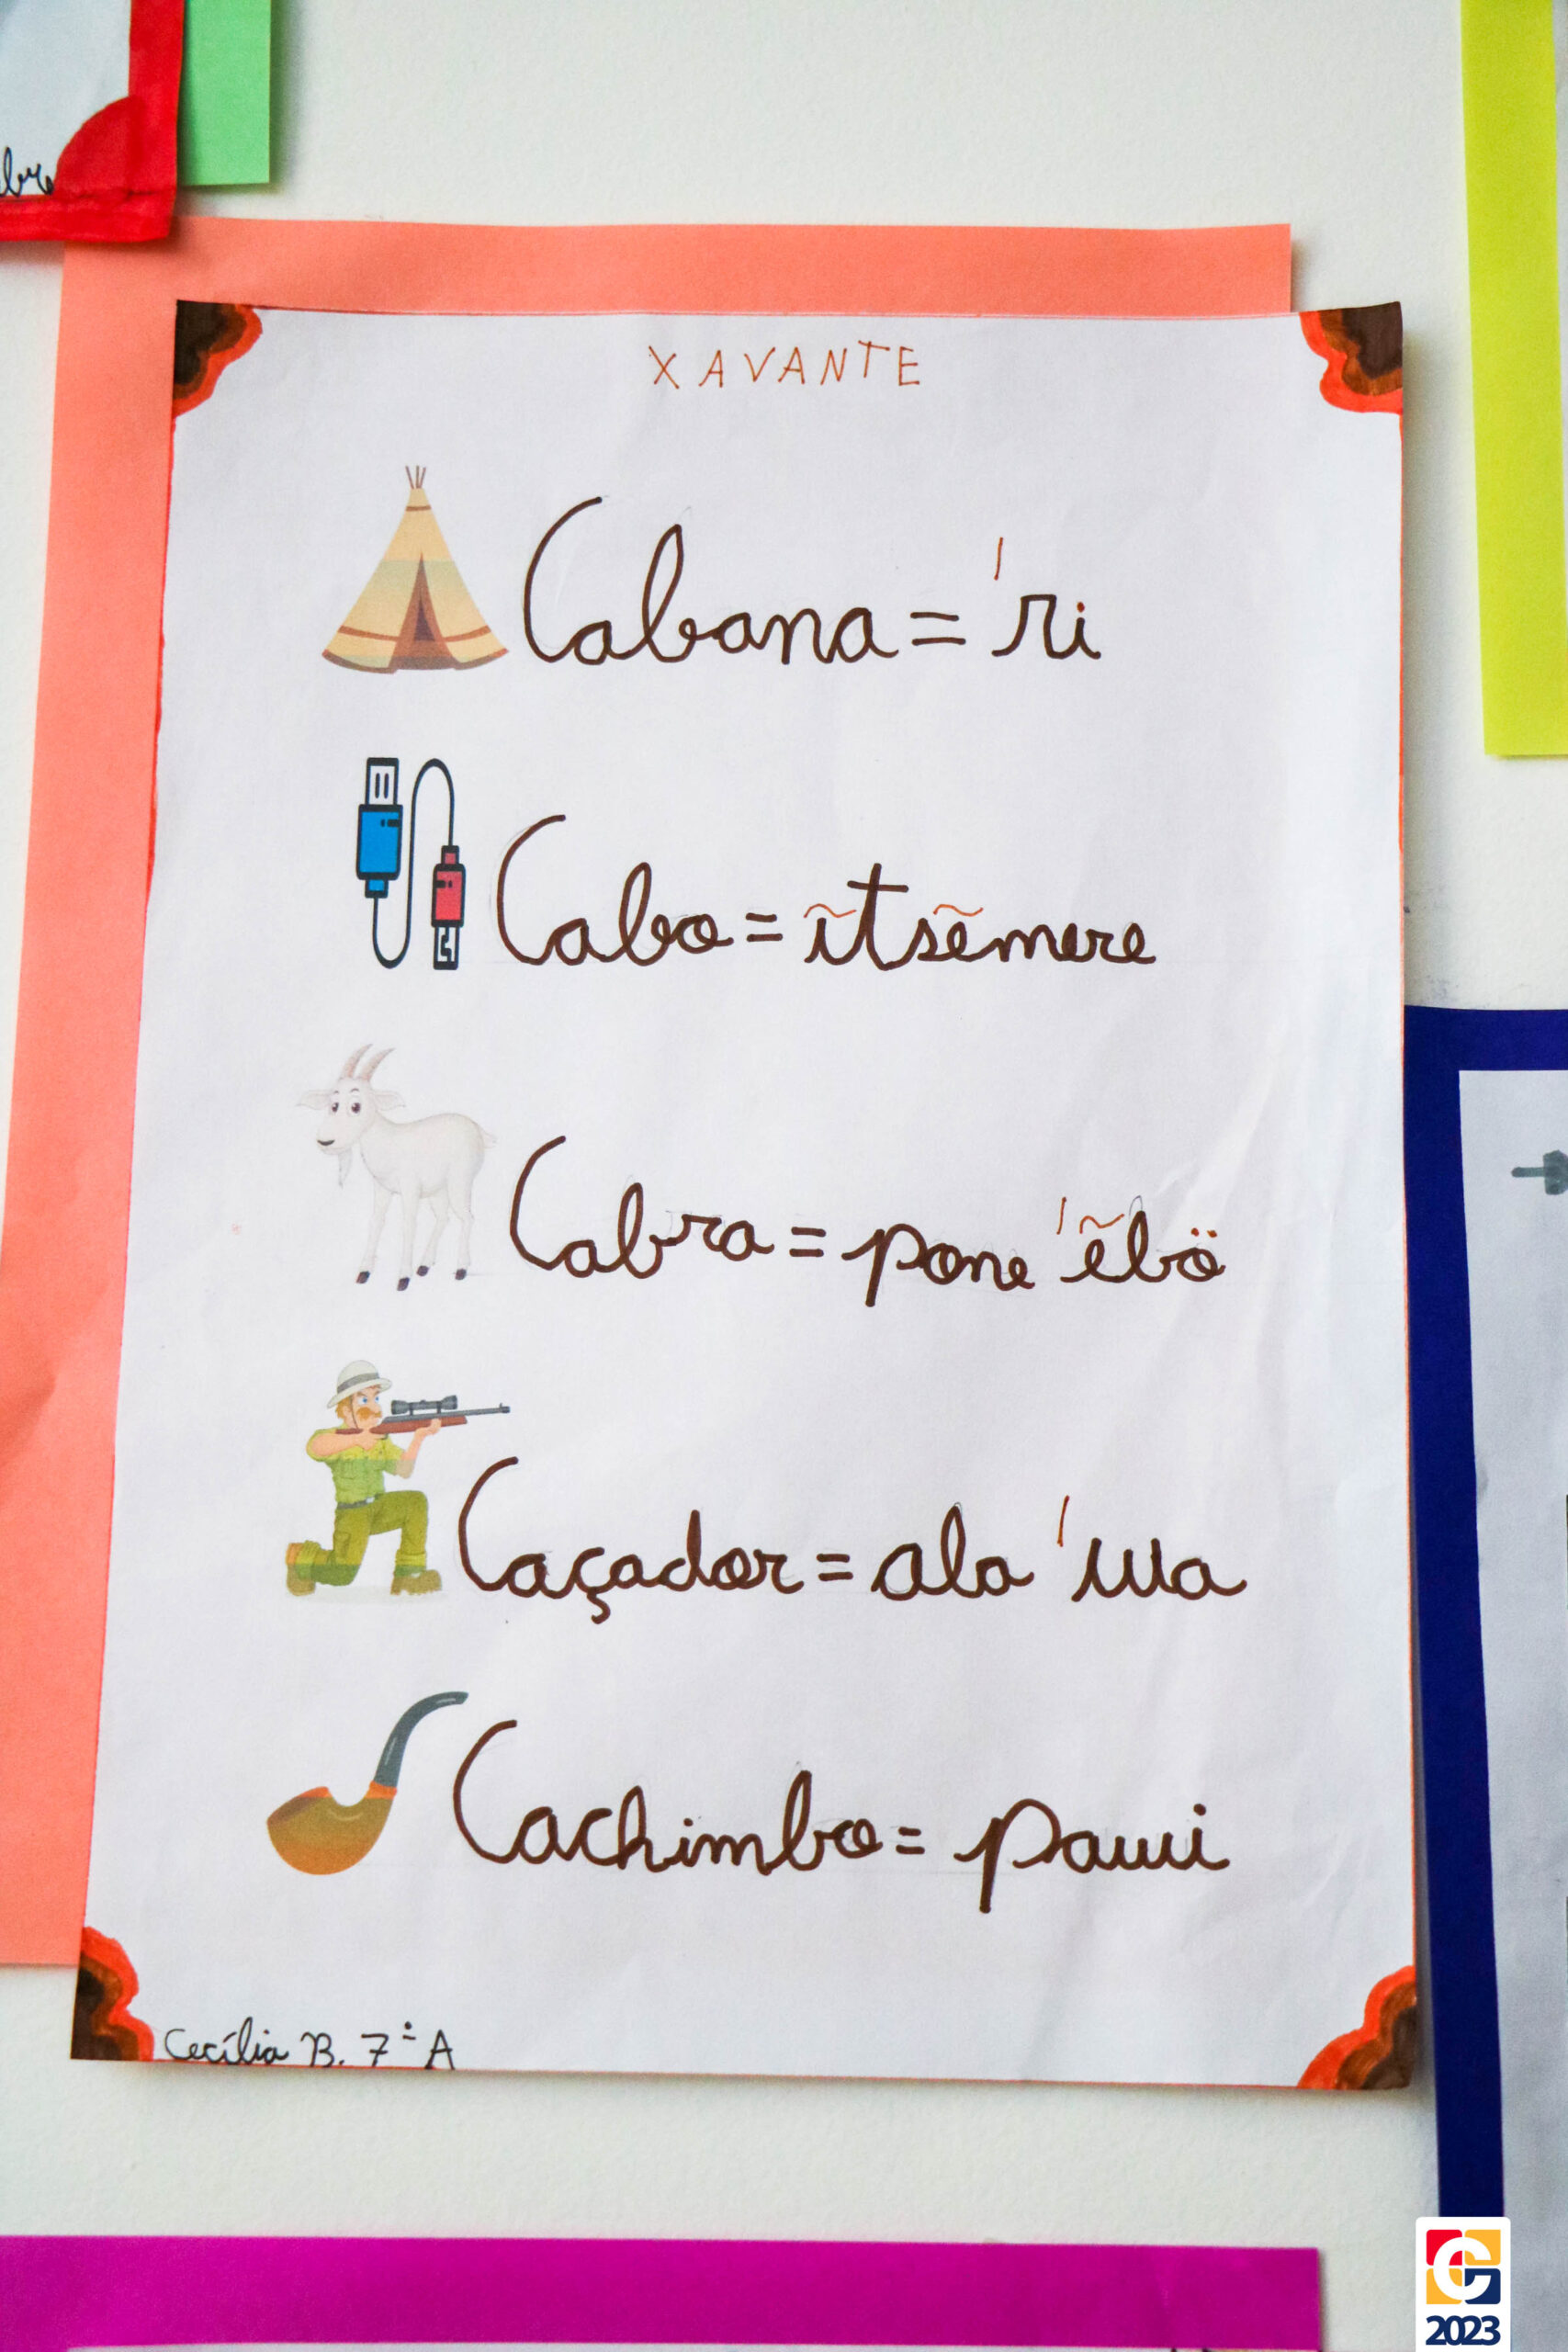 XAVANTE
Cabana = 'ri
Cabo = ĩtsẽmere
Cabra = pone 'ẽbö
Caçador = aba 'wa
Cachimbo = pawi
Cecília B. 7º A
2023